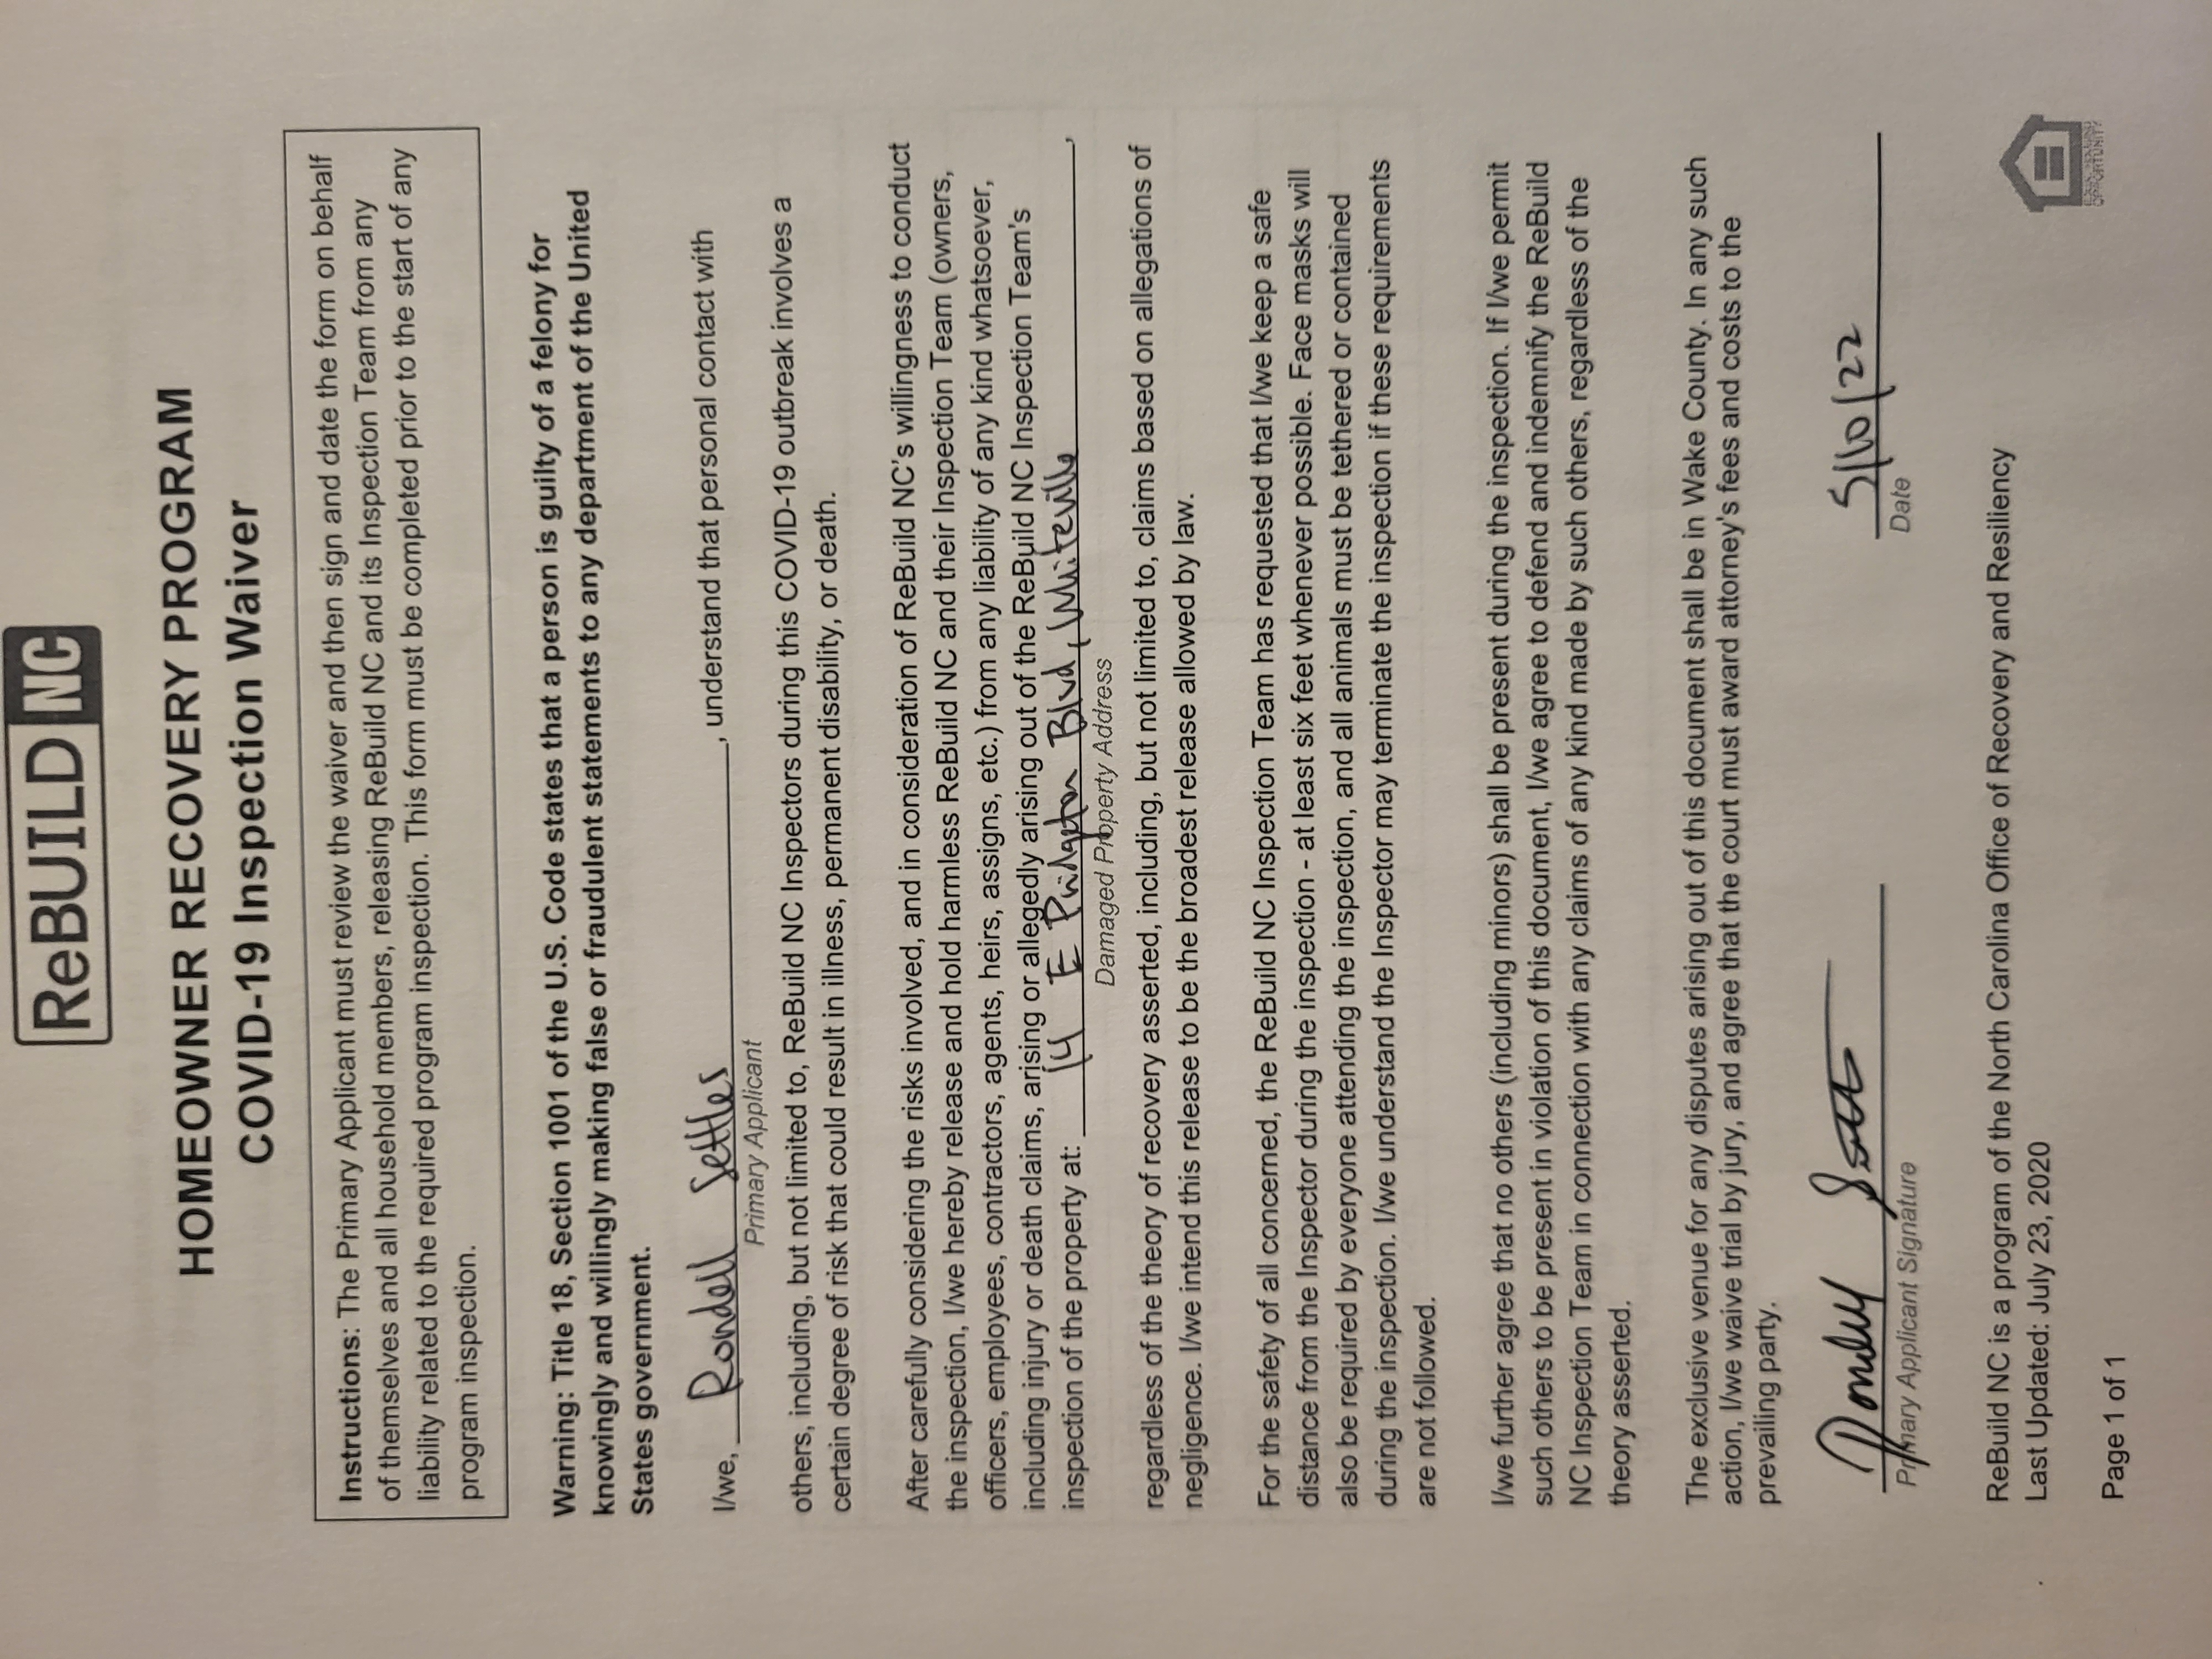 ReBUILD NC
HOMEOWNER RECOVERY PROGRAM
COVID-19 Inspection Waiver
Instructions: The Primary Applicant must review the waiver and then sign and date the form on behalf
of themselves and all household members, releasing ReBuild NC and its Inspection Team from any
liability related to the required program inspection. This form must be completed prior to the start of any
program inspection.
Warning: Title 18, Section 1001 of the U.S. Code states that a person is guilty of a felony for
knowingly and willingly making false or fraudulent statements to any department of the United
States government.
I/we, Rondell Settles, understand that personal contact with
Primary Applicant
others, including, but not limited to, ReBuild NC Inspectors during this COVID-19 outbreak involves a
certain degree of risk that could result in illness, permanent disability, or death.
After carefully considering the risks involved, and in consideration of ReBuild NC's willingness to conduct
the inspection, I/we hereby release and hold harmless ReBuild NC and their Inspection Team (owners,
officers, employees, contractors, agents, heirs, assigns, etc.) from any liability of any kind whatsoever,
including injury or death claims, arising or allegedly arising out of the ReBuild NC Inspection Team's
inspection of the property at: 14 E Blvd, Whiteville,
Damaged Property Address
regardless of the theory of recovery asserted, including, but not limited to, claims based on allegations of
negligence. I/we intend this release to be the broadest release allowed by law.
For the safety of all concerned, the ReBuild NC Inspection Team has requested that I/we keep a safe
distance from the Inspector during the inspection - at least six feet whenever possible. Face masks will
also be required by everyone attending the inspection, and all animals must be tethered or contained
during the inspection. I/we understand the Inspector may terminate the inspection if these requirements
are not followed.
I/we further agree that no others (including minors) shall be present during the inspection. If I/we permit
such others to be present in violation of this document, I/we agree to defend and indemnify the ReBuild
NC Inspection Team in connection with any claims of any kind made by such others, regardless of the
theory asserted.
The exclusive venue for any disputes arising out of this document shall be in Wake County. In any such
action, I/we waive trial by jury, and agree that the court must award attorney's fees and costs to the
prevailing party.
5/10/22
Primary Applicant Signature Date
ReBuild NC is a program of the North Carolina Office of Recovery and Resiliency
Last Updated: July 23, 2020
Page 1 of 1
OPPORTUNITY